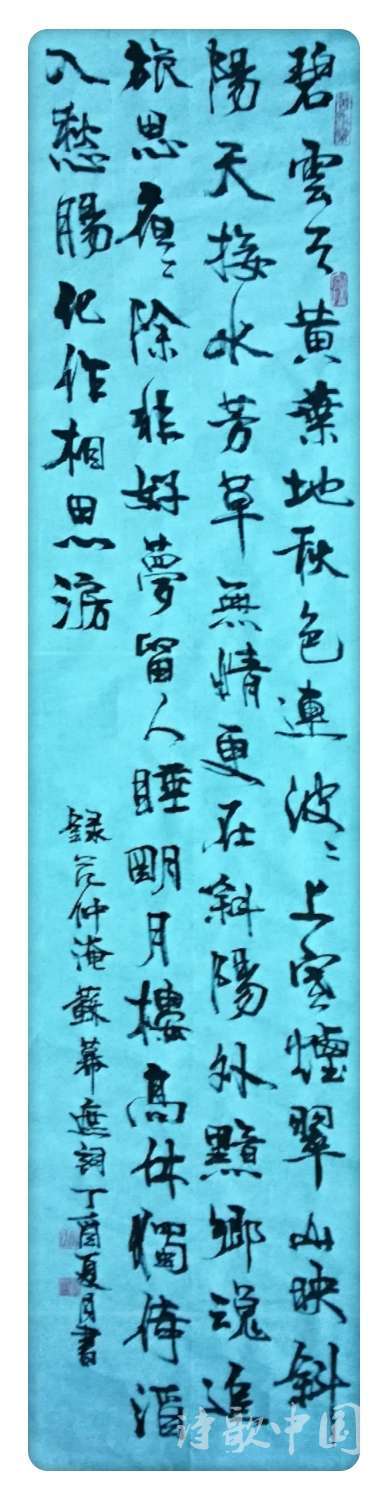 碧雲天黃葉地秋色連波〻上寒煙翠山映斜
陽天接水芳草無情更在斜陽外黯鄉魂追
旅思夜〻除非好夢留人睡明月樓高休獨倚酒
入愁腸化作相思淚
錄范仲淹蘇幕遮詞丁酉夏月書
诗歌中国